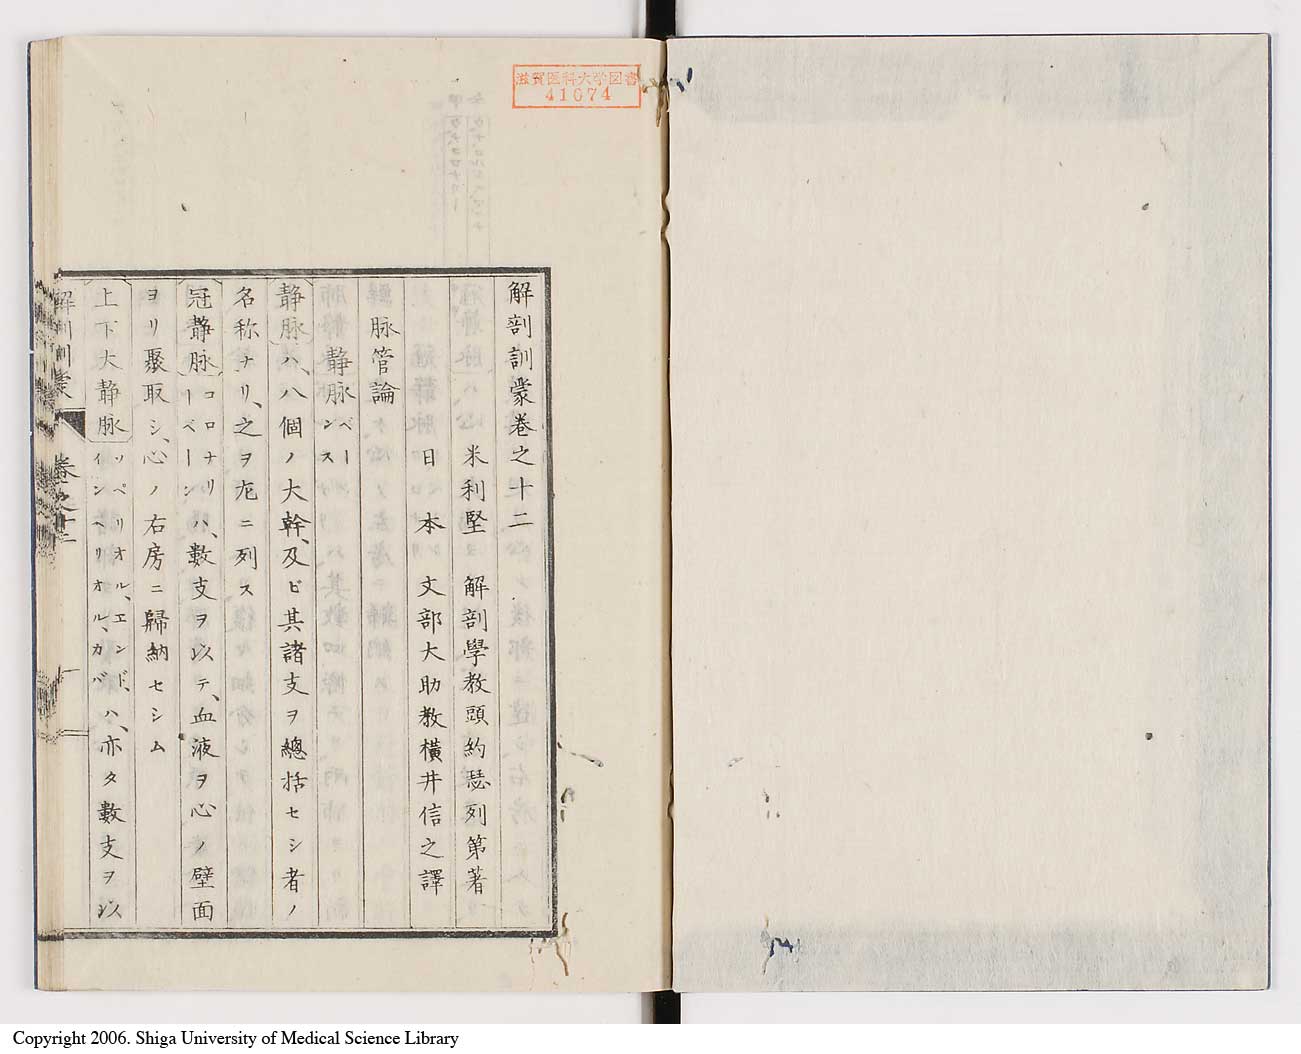 滋賀医科大学図書
41074
解剖訓蒙巻之十二
米利堅 解剖學教頭約瑟列第著
日本 文部大助教横井信之譯
脉管論
静脉 ベーンス
静脉ハ、八個ノ大幹、及ビ其諸支ヲ總括セシ者ノ
名称ナリ、之ヲ左ニ列ス
冠静脉 コロナリーベーン ハ、數支ヲ以テ、血液ヲ心ノ壁面
ヨリ聚取シ、心ノ右房ニ歸納セシム
上下大静脉 ソペリオル、エンド、インヘリオル、カバ ハ、亦タ數支ヲ以
解剖訓蒙 巻之十二
Copyright 2006. Shiga University of Medical Science Library